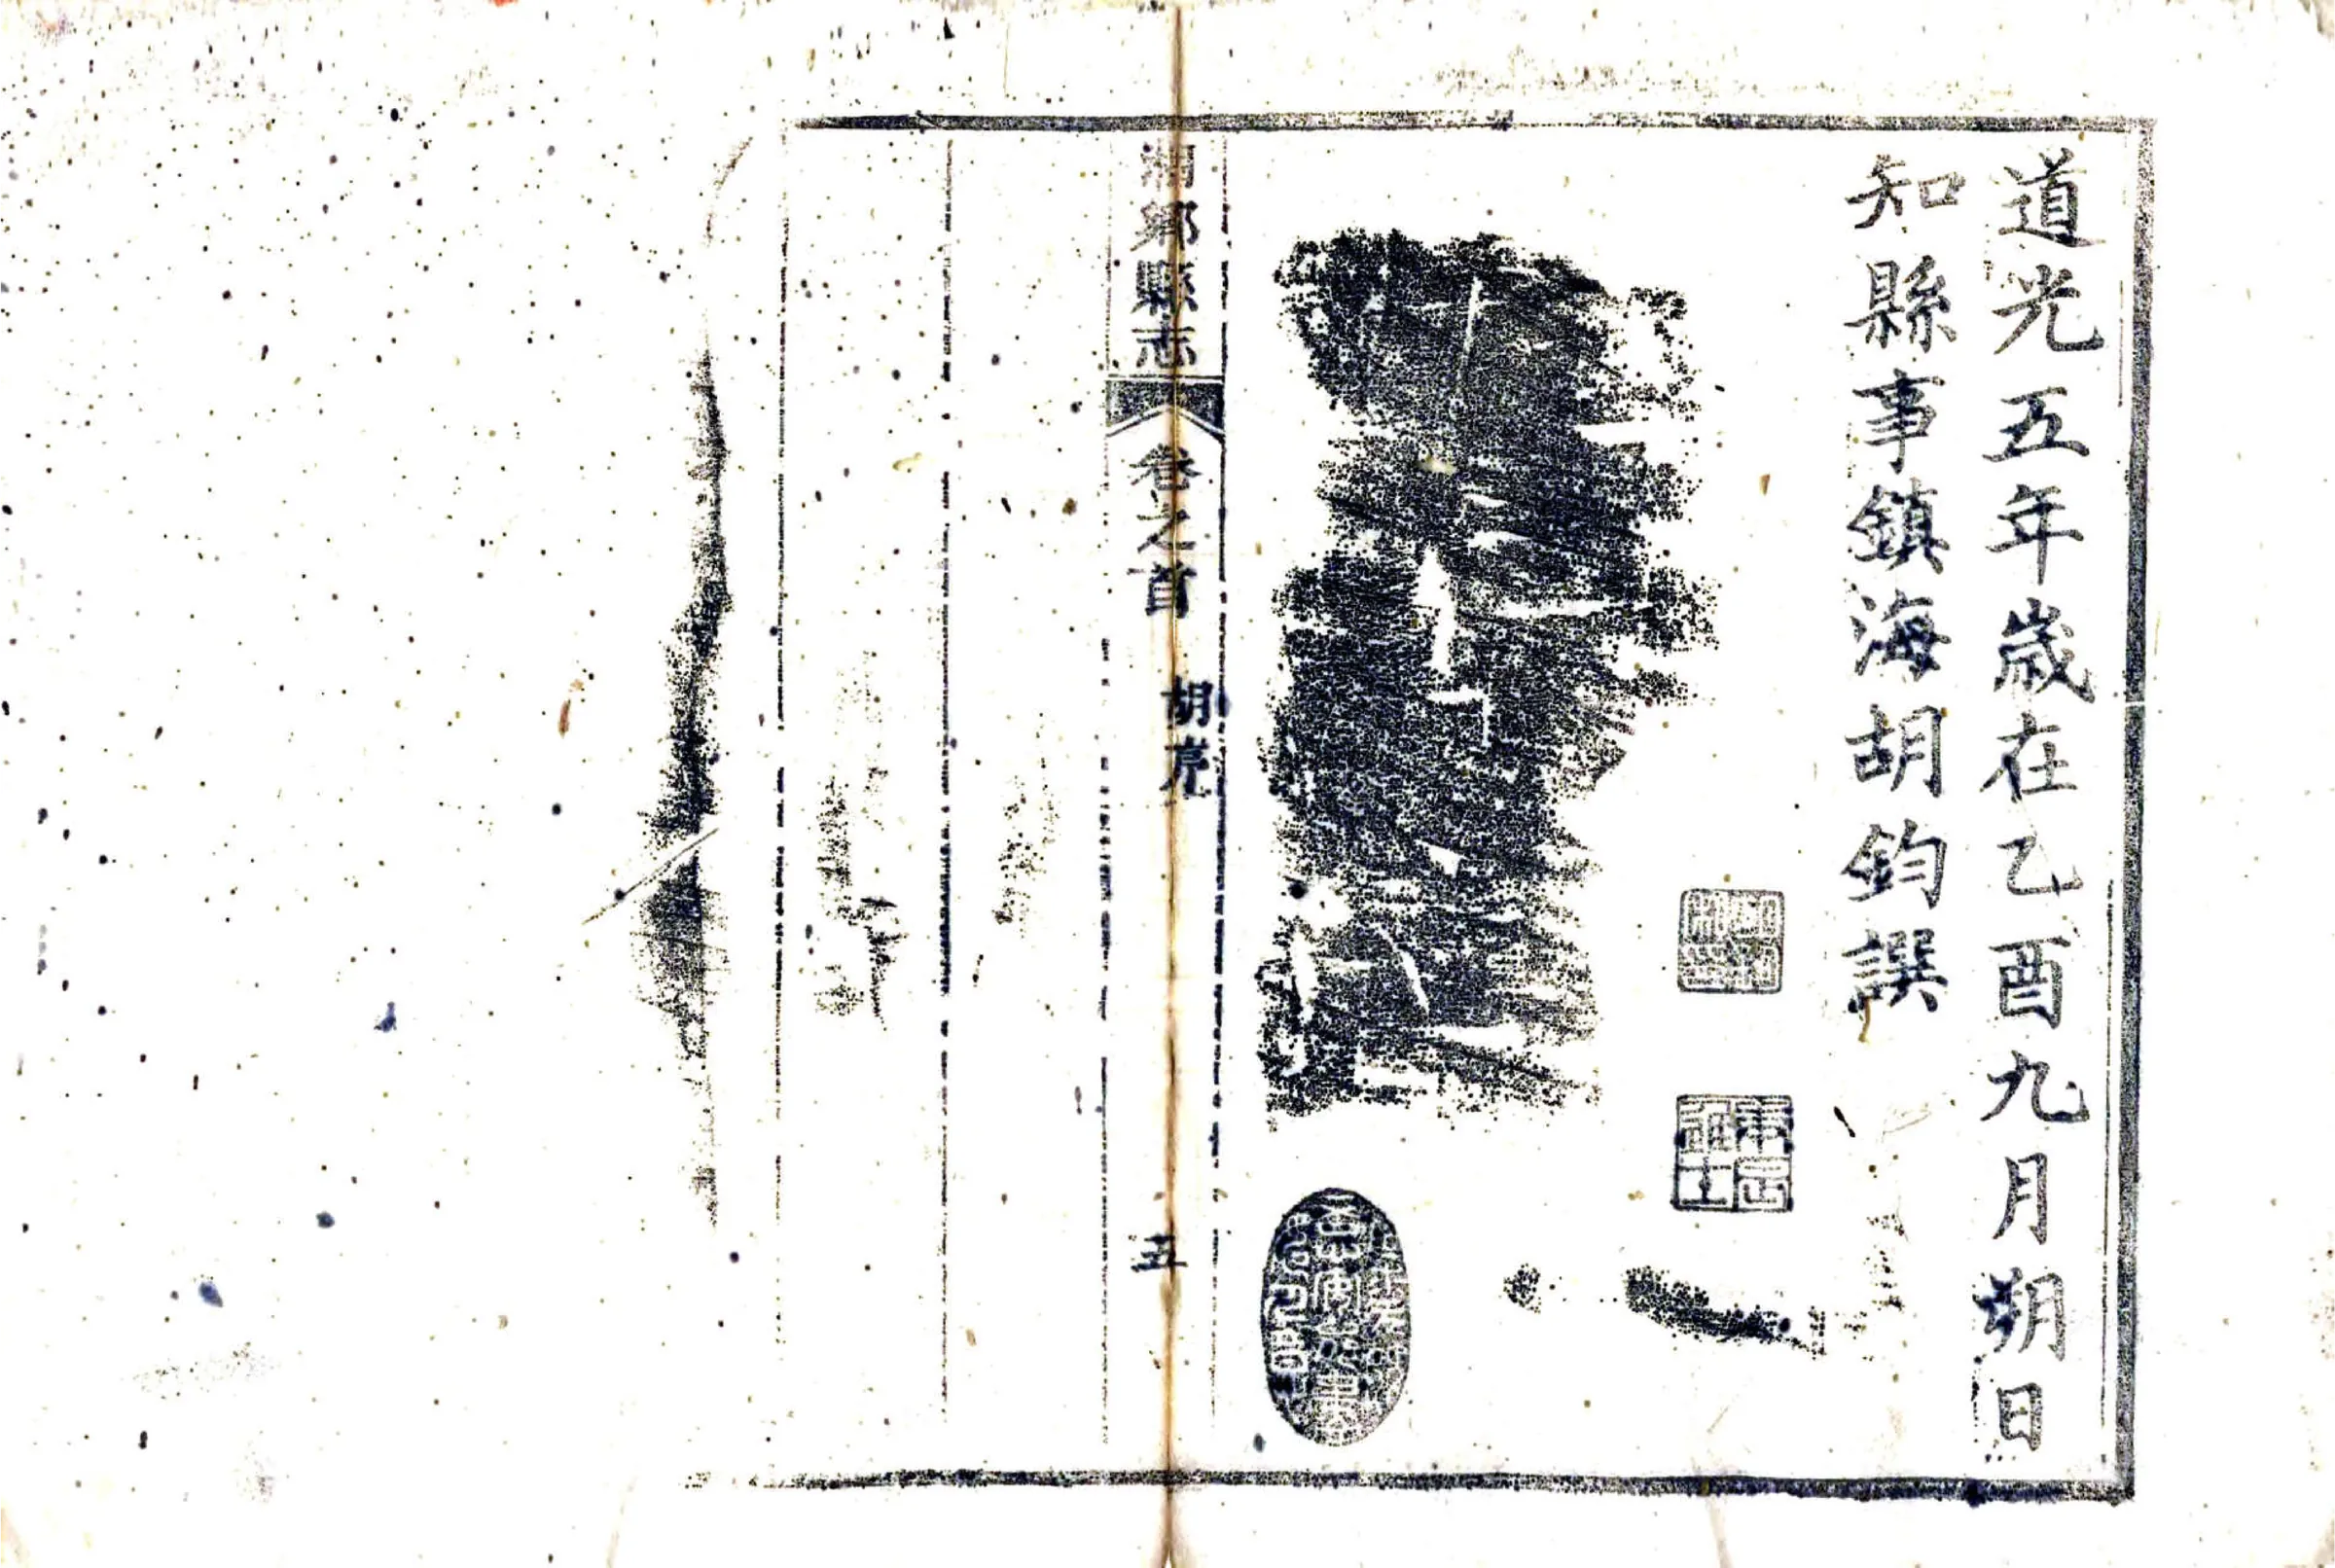 道光五年歲在乙酉九月朔日
知縣事鎮海胡鈞譔
鄉縣志
卷之首
胡序
五